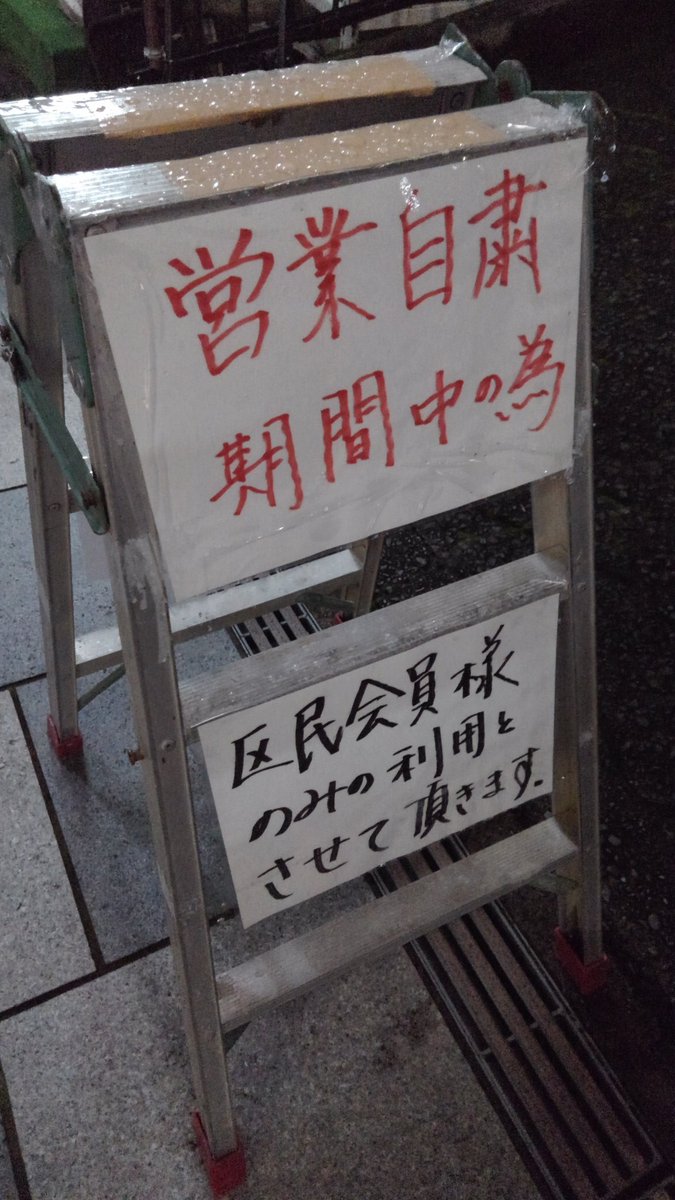 営業自粛
期間中の為
区民会員様
のみの利用と
させて頂きます.